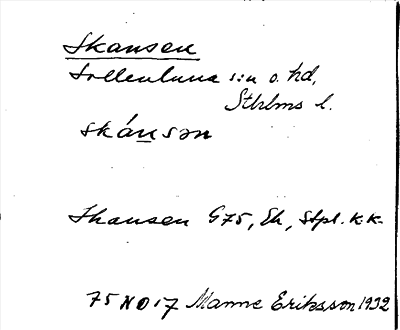 Skansen
Sollentuna s:n o. hd,
Sthlms l.
skánsən
Skansen G75, Ek, Stpl. k.k.
75 NO 17 Manne Eriksson 1932